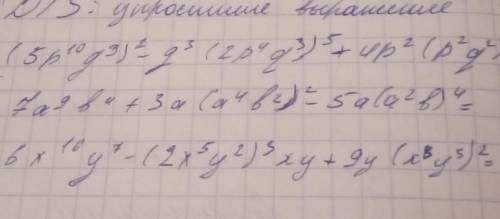 Д/З: упростите выражение
(5p¹⁰q⁹)² - q³ (2p⁴q³)⁵ + 4p² (p²q²
7a⁹b⁴ + 3a (a⁴b²)² - 5a(a²b)⁴ =
6x¹⁶y⁷ - (2x⁵y²)³xy + 9y (x⁸y³)² =